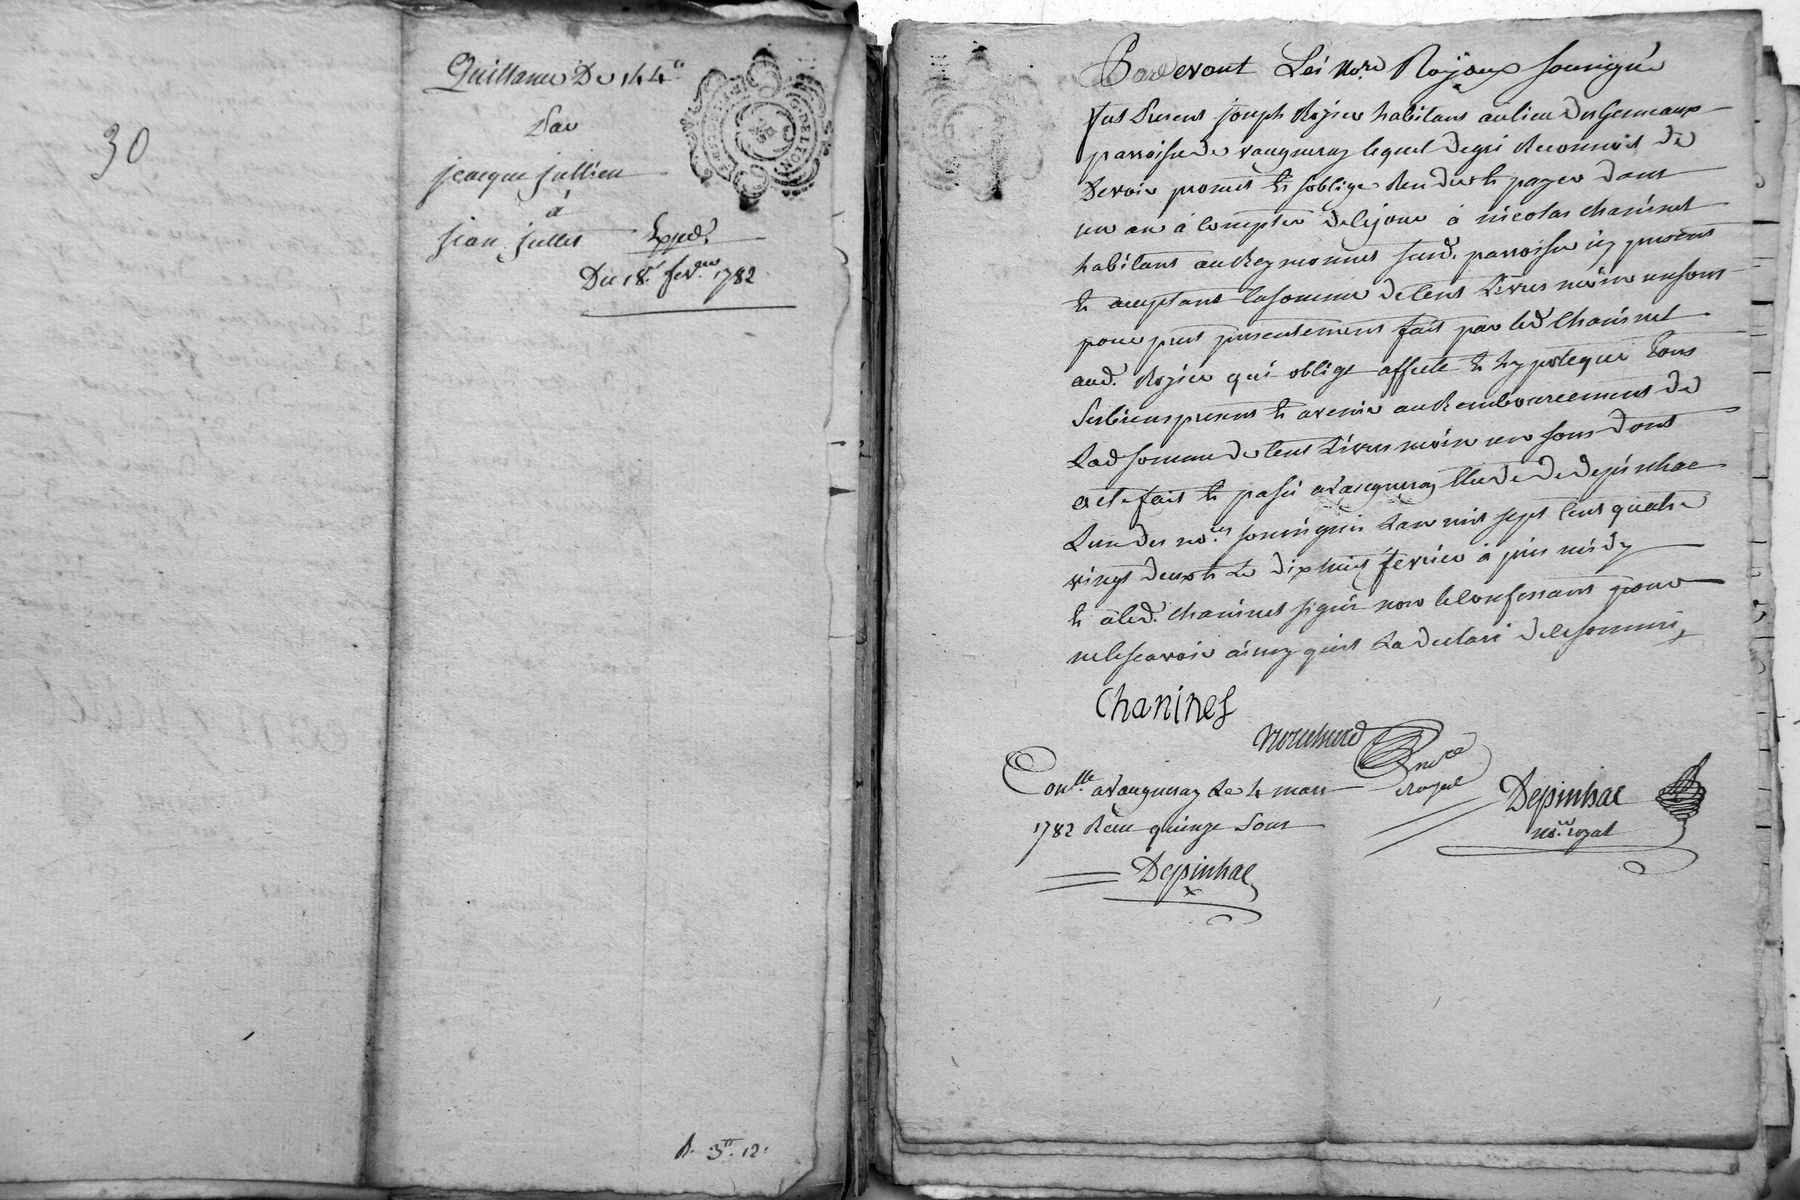 30
Quittance De 144lt
Par
jacque jullien
à
jean jullet Expedt.
Du 18e. fevrier 1782
A. 3lt. 12s
Pardevant Les Nores. Royaux soussignés
fut Present joseph Rozier habitant au lieu des Gemeaux
parroisse de vaugneray lequel de gré Reconnoit de
devoir promet et s'oblige Rendre et payer dans
un an à compter de ce jour à nicolas chaninet
habitant au Reymonnet susd. parroisse icy present
et acceptant la somme de Cent Livres moins un sous
pour prest presentement fait par led. Chaninet
aud. Rozier qui oblige affecte et hypoteque tous
ses biens present et avenir au Remboursement de
Lad. somme de Cent Livres moins un sous dont
acte fait et passé a Vaugneray Etude de depinhac
L'un des nores. soussignés L'an mil sept Cent quatre
vingt deux et Le dix huit fevrier à près midy
et a led. Chaninet signé non le Confessant pour
ne le scavoir ainsy qu'il La declaré de ce sommé,
Chaninet
nore
royal
Depinhac
nore. royal
Conlle. a Vaugneray Le 4 mars
1782 Reçu quinze Sous
Depinhac